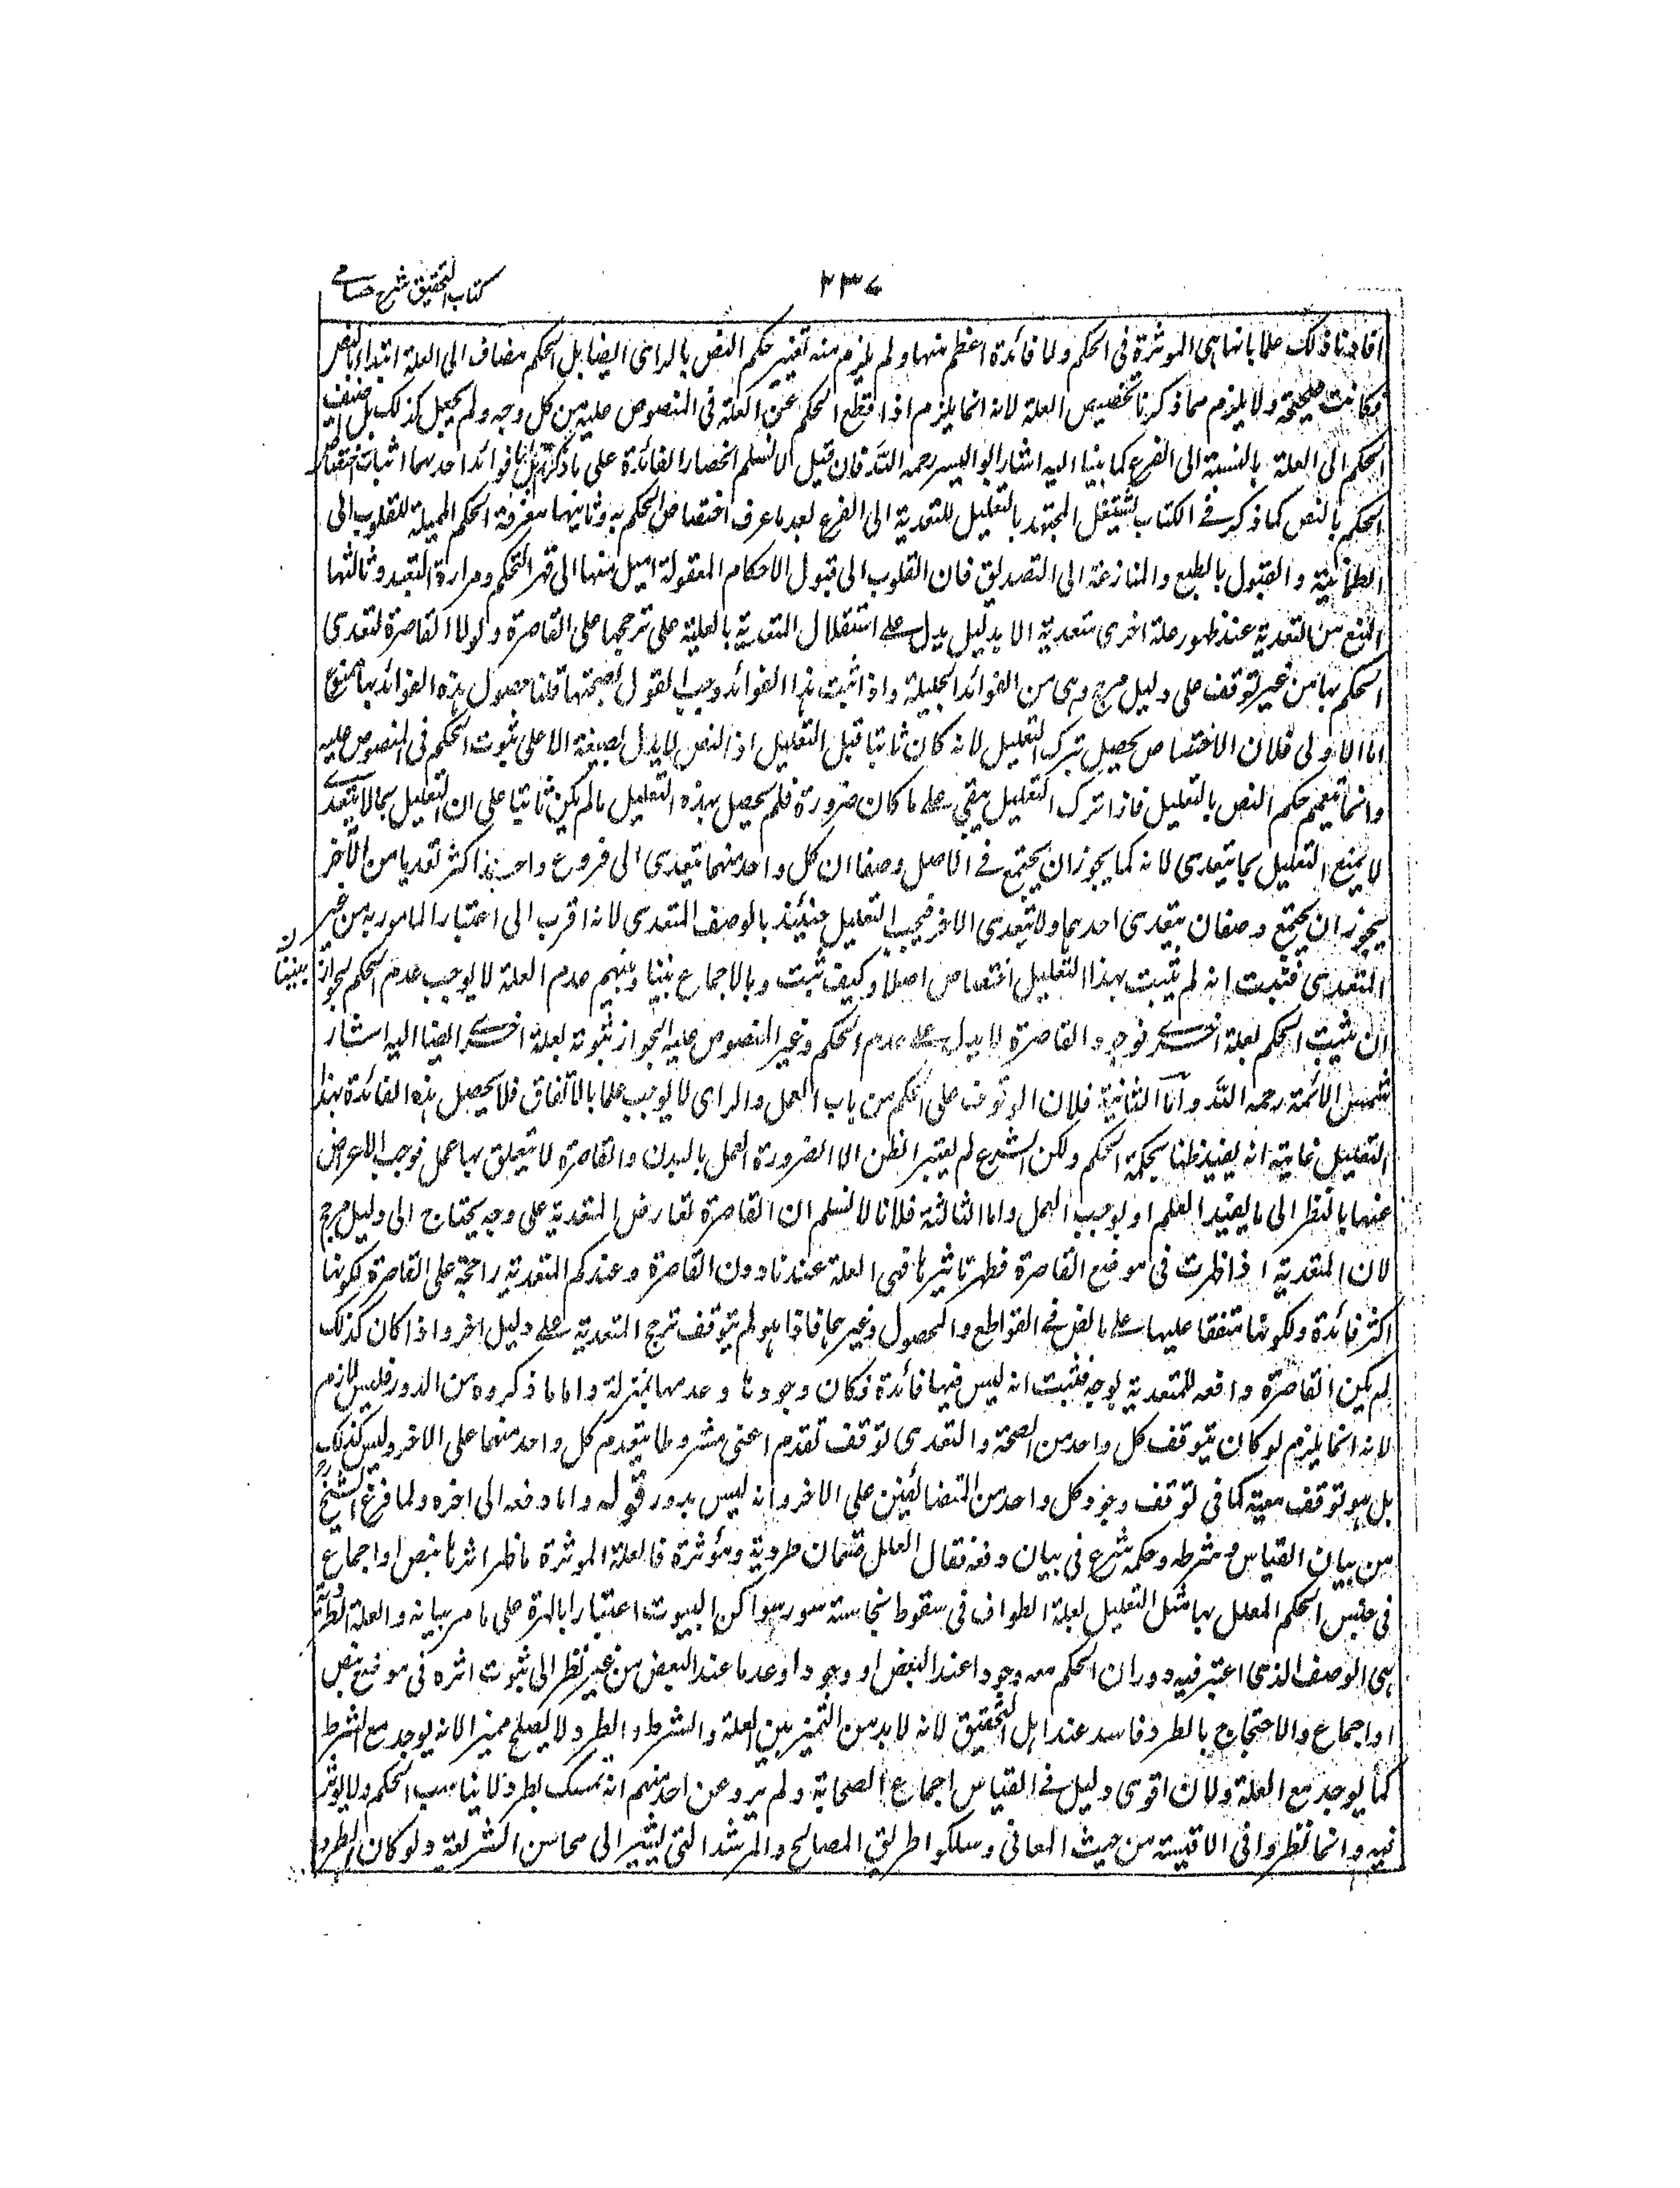 كتاب التحقيق شرح حسامي
٢٣٧
افادتنا ذلك علما بانها هي الموثرة في الحكم ولما فائدة اعظم منها ولم يلزم منه تغيير حكم النص بالراى ايضا بل الحكم مضاف الى العلة ابتداء بالنص
وكانت صحيحة ولا يلزم مما ذكرنا تخصيص العلة لانه انما يلزم اذا انقطع الحكم عن العلة في المنصوص عليه من كل وجه ولم يجعل كذلك بل اضيف
الحكم الى العلة بالنسبة الى الفرع كما بينا اليه اشار ابو اليسر رحمه الله فان قيل لا نسلم انحصار الفائدة على ما ذكرتم بل لها فوائد احدهما اثبات اختصاص
الحكم بالنص كما ذكر في الكتاب لئلا يشتغل المجتهد بالتعليل للتعدية الى الفرع بعد ما عرف اختصاص الحكم به وثانيها معرفة الحكم المميلة للقلوب الى
الطمانينة والقبول بالطبع والمنازعة الى التصديق فان القلوب الى قبول الاحكام المعقولة اميل منها الى قهر التحكم ومرارة التعبد وثالثها
المنع من التعدية عند ظهور علة اخرى متعدية الا بدليل يدل على استقلال المتعدية بالعلية على ترجحها على القاصرة ولولا القاصرة لتعدى
الحكم بها من غير توقف على دليل مرجح وهى من الفوائد الجليلة واذا ثبت هذا الفوائد وجب القول بصحتها قلنا حصول هذه الفوائد بها ممنوع
اما الاولى فلان الاختصاص يحصل بترك التعليل لانه كان ثابتا قبل التعليل اذ النص لا يدل بصيغة الا على ثبوت الحكم في المنصوص عليه
وانما يعمم حكم النص بالتعليل فاذا ترك التعليل يبقى على ما كان ضرورة فلم يحصل بهذه التعليل ما لم يكن ثابتا على ان التعليل بما لا يتعدى
لا يمنع التعليل بما يتعدى لانه كما يجوز ان يجتمع في الاصل وصفا ان كل واحد منهما يتعدى الى فروع واحدهما اكثر تعديا من الآخر
يجوز ان يجتمع وصفان يتعدى احدهما ولا يتعدى الاخر فيجب التعليل حينئذ بالوصف المتعدى لانه اقرب الى اعتبار المامور به من غير
المتعدى فثبت انه لم يثبت بهذا التعليل اختصاص اصلا وكيف ثبت وبالاجماع بيننا وبينهم عدم العلة لا يوجب عدم الحكم لجواز
ان يثبت الحكم لعلة اخرى فوجود القاصرة لا يدل على عدم الحكم وغير المنصوص عليه لجواز ثبوته لعلة اخرى ايضا اليه اشار
شمس الائمة رحمه الله واما الثانية فلان الوقوف على الحكم من باب العمل والراى لا يوجب علما بالاتفاق فلا يحصل هذه الفائدة بهذا
التعليل غايته انه يفيد ظنا بحكمة الحكم ولكن الشرع لم يعتبر الظن الا لضرورة العمل بالبدن والقاصرة لا يتعلق بها عمل فوجب الاعراض
عنها بالنظر الى ما يفيد العلم او يوجب العمل واما الثالثة فلانا لا نسلم ان القاصرة تعارض المتعدية على وجه يحتاج الى دليل مرجح
لان المتعدية اذا ظهرت في موضع القاصرة فظهر تاثيرها فهى العلة عندنا دون القاصرة وعندكم المتعدية راجحة على القاصرة لكونها
اكثر فائدة ولكونها متفقا عليها على ما نص في القواطع والمحصول وغيرهما فاذا هو لم يتوقف ترجح المتعدية على دليل اخر واذا كان كذلك
لم يكن القاصرة دافعة للمتعدية بوجه فثبت انه ليس فيها فائدة فكان وجودها وعدمها بمنزلة واما ما ذكروه من الدور فليس بلازم
لانه انما يلزم لو كان يتوقف كل واحد من الصحة والتعدى توقف تقدم اعنى مشروطا بتقدم كل واحد منهما على الاخر وليس كذلك
بل هو توقف معية كما في توقف وجود كل واحد من المتضائفين على الاخر وانه ليس بدور قوله واما دفعه الى اخره ولما فرغ الشيخ
من بيان القياس وشرطه وحكمه شرع في بيان دفعه فقال العلل قسمان طردية ومؤثرة فالعلة الموثرة ما ظهر اثرها بنص او اجماع
في جنس الحكم المعلل بها مثل التعليل لعلة الطواف في سقوط نجاسة سور سواكن البيوت اعتبارا بالهرة على ما مر بيانه والعلة الطردية
هى الوصف الذى اعتبر فيه دوران الحكم معه وجودا عند البعض او وجودا وعدما عند البعض من غير نظر الى ثبوت اثره في موضع بنص
او اجماع والاحتجاج بالطرد فاسد عند اهل التحقيق لانه لا بد من التميز بين العلة والشرط والطرد لا يصلح مميزا لانه يوجد مع الشرط
كما يوجد مع العلة ولان اقوى دليل في القياس اجماع الصحابة ولم يرو عن احد منهم انه تمسك بطرد لا يناسب الحكم ولا يوثر
فيه وانما نظروا في الاقيسة من حيث المعانى وسلكوا طريق المصالح والمراشد التى يشير الى محاسن الشريعة ولو كان الطرد